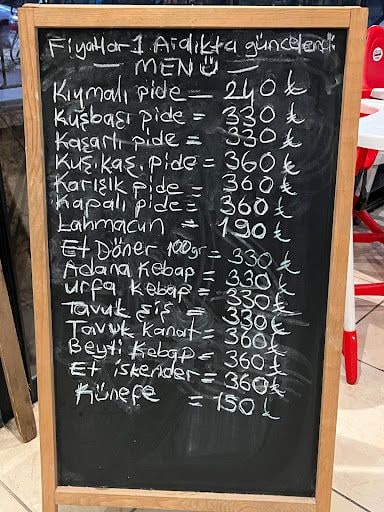 Fiyatlar 1 Aralıkta güncelendi
MENÜ
Kıymalı pide = 240 ₺
Kuşbaşı pide = 330 ₺
Kaşarlı pide = 330 ₺
Kuş.kaş. pide = 360 ₺
Karışık pide = 360 ₺
Kapalı pide = 360 ₺
Lahmacun = 190 ₺
Et Döner 100gr = 330 ₺
Adana Kebap = 330 ₺
urfa kebap = 330 ₺
Tavuk şiş = 330 ₺
Tavuk Kanat = 360 ₺
Beyti Kebap = 360 ₺
Et iskender = 360 ₺
Künefe = 150 ₺